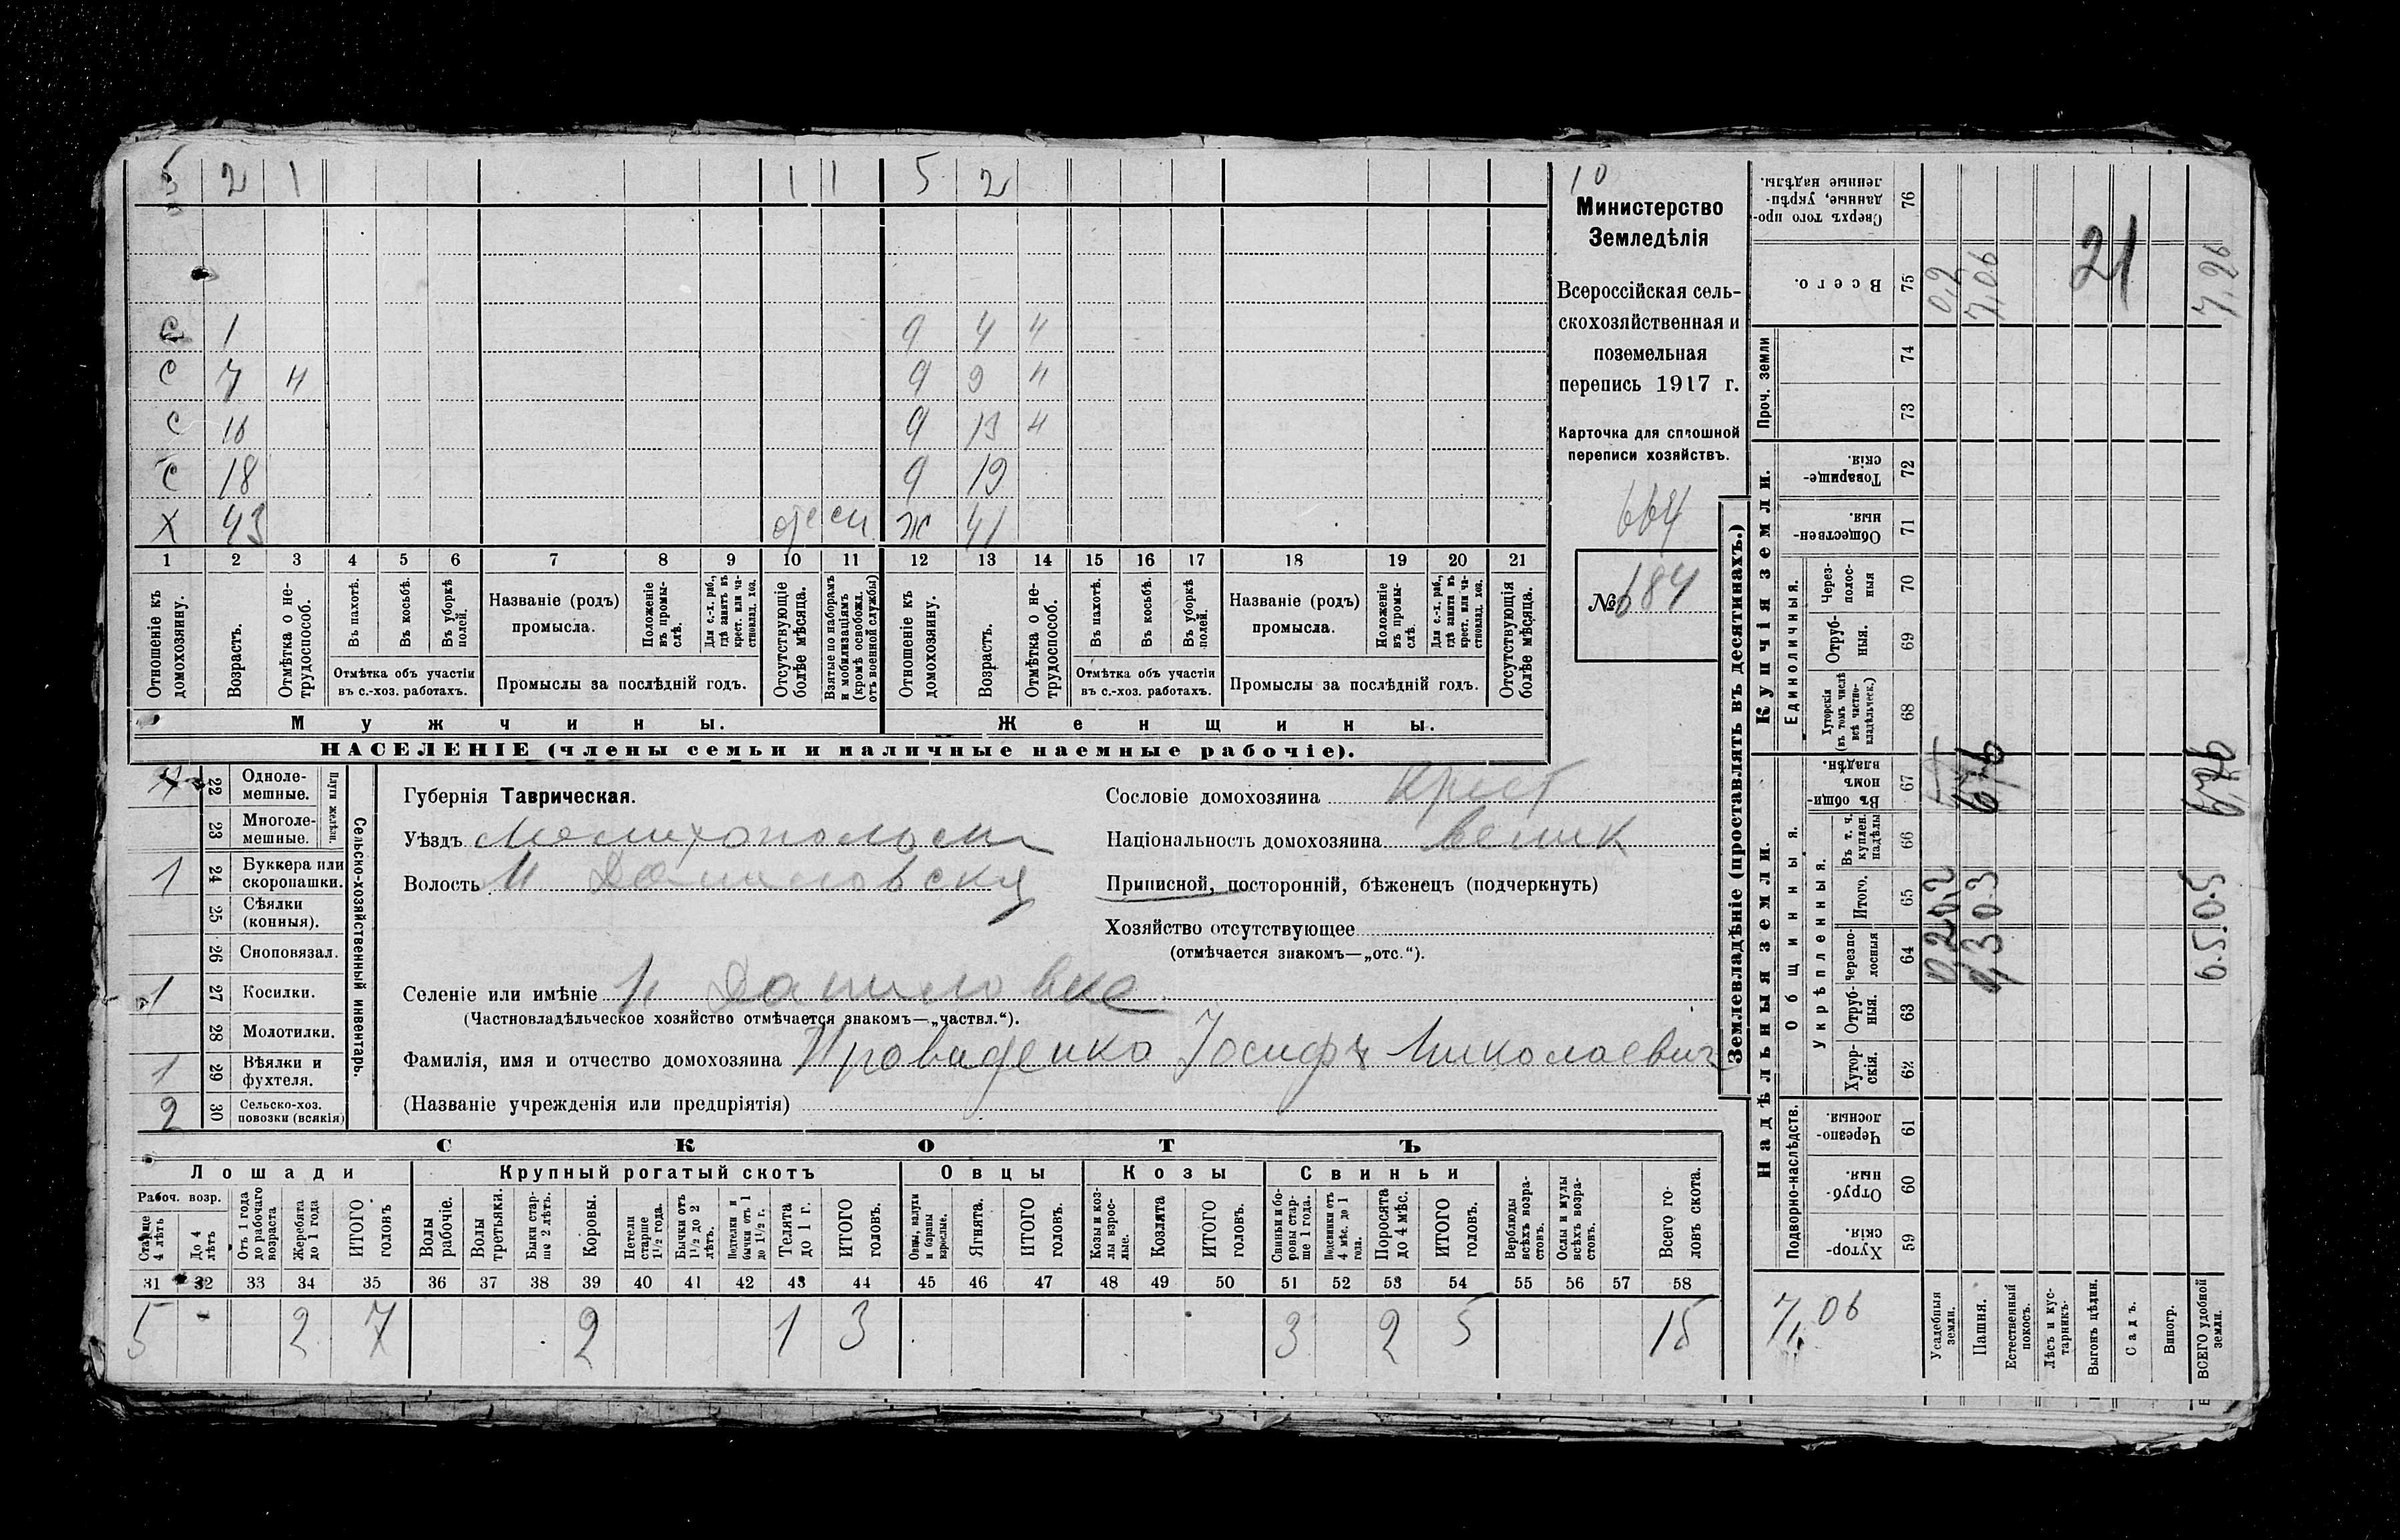 5 2 1 1 1 5 2
С 1 9 4 Н
С 7 Н 9 9 Н
С 16 9 13 Н
С 18 9 19
Х 43 Ж 41
1 2 3 4 5 6 7 8 9 10 11 12 13 14 15 16 17 18 19 20 21
Отношеніе къ домохозяину.
Возрастъ.
Отмѣтка о не-
трудоспособ.
Въ пахотѣ.
Въ косьбѣ.
Въ уборкѣ полей.
Отмѣтка объ участіи
въ с.-хоз. работахъ.
Названіе (родъ)
промысла.
Положеніе
въ промы-
слѣ.
Для с.-х. раб.,
гдѣ занятъ въ
крест. или ча-
ствовлад. хоз.
Промыслы за послѣдній годъ.
Отсутствующіе
болѣе мѣсяца.
Взятые по наборамъ
и мобилизаціямъ
(кромѣ освобожд.
отъ военной службы)
Отношеніе къ
домохозяину.
Возрастъ.
Отмѣтка о не-
трудоспособ.
Въ пахотѣ.
Въ косьбѣ.
Въ уборкѣ
полей.
Отмѣтка объ участіи
въ с.-хоз. работахъ.
Названіе (родъ)
промысла.
Положеніе
въ промы-
слѣ.
Для с.-х. раб.,
гдѣ занята въ
крест. или ча-
ствовлад. хоз.
Промыслы за послѣдній годъ.
Отсутствующія
болѣе мѣсяца.
Мужчины. Женщины.
НАСЕЛЕНІЕ (члены семьи и наличные наемные рабочіе).
10
Министерство
Земледѣлія
Всероссійская сель-
скохозяйственная и
поземельная
перепись 1917 г.
Карточка для сплошной
переписи хозяйствъ.
664
№ 684
Сельско-хозяйственный инвентарь.
Плуги желѣзн.
22 Одноле-
мешные.
23 Многоле-
мешные.
1 24 Буккера или
скоропашки.
25 Сѣялки
(конныя).
26 Сноповязал.
1 27 Косилки.
28 Молотилки.
1 29 Вѣялки и
фухтеля.
2 30 Сельско-хоз.
повозки (всякія)
Губернія Таврическая.
Уѣздъ Мелитопольск
Волость Н Даниловская
Селеніе или имѣніе Н Даниловка
(Частновладѣльческое хозяйство отмѣчается знакомъ—„частвл.“).
Фамилія, имя и отчество домохозяина Іосифъ Николаевич
(Названіе учрежденія или предпріятія)
Сословіе домохозяина Крест
Національность домохозяина велик
Приписной, посторонній, бѣженецъ (подчеркнуть)
Хозяйство отсутствующее
(отмѣчается знакомъ—„отс.“).
СКОТЪ
Лошади Крупный рогатый скотъ Овцы Козы Свиньи
Рабоч. возр.
Старше
4 лѣтъ
До 4
лѣтъ
Отъ 1 года
до рабочаго
возраста
Жеребята
до 1 года
ИТОГО
головъ
Волы
рабочіе.
Волы
третьяки.
Быки стар-
ше 2 лѣтъ.
Коровы.
Нетели
старше
1½ года.
Бычки отъ
1½ до 2
лѣтъ.
Подтелки и
бычки отъ 1
до 1½ г.
Телята
до 1 г.
ИТОГО
головъ.
Овцы, валухи
и бараны
взрослые.
Ягнята.
ИТОГО
головъ.
Козы и коз-
лы взрос-
лые.
Козлята
ИТОГО
головъ.
Свиньи и бо-
ровы стар-
ше 1 года.
Подсвинки отъ
4 мѣс. до 1
года.
Поросята
до 4 мѣс.
ИТОГО
головъ.
Верблюды
всѣхъ возра-
стовъ.
Ослы и мулы
всѣхъ возра-
стовъ.
Всего го-
ловъ скота.
31 32 33 34 35 36 37 38 39 40 41 42 43 44 45 46 47 48 49 50 51 52 53 54 55 56 57 58
5 - 2 7 2 1 3 3 2 5 15
Землевладѣніе (проставлять въ десятинахъ.)
Надѣльныя земли. Купчія земли. Проч. земли
Подворно-наслѣдств. Общинныя. Единоличныя.
Укрѣпленныя.
Сверхъ того про-
данные, укрѣп-
ленные надѣлы.
76
Всего. 75 0,2 7,06 7,26
21
74
73
Товарище-
скія. 72
Обществен-
ныя. 71
Через-
полос-
ныя 70
Отруб-
ныя. 69
Хуторскія
(въ томъ числѣ
всѣ частно-
владѣльческ.) 68
Въ общин-
номъ
владѣн. 67
Въ т. ч.
куплен.
надѣлы 66
Итого. 65
Черезпо-
лосныя 64
Отруб-
ныя. 63
Хутор-
скія. 62
Черезпо-
лосныя. 61
Отруб-
ныя. 60
Хутор-
скія. 59
7,06
Усадебныя
земли.
Пашня.
Естественный
покосъ.
Лѣсъ и кус-
тарникъ.
Выгонъ цѣлин.
Садъ.
Виногр.
ВСЕГО удобной
земли.